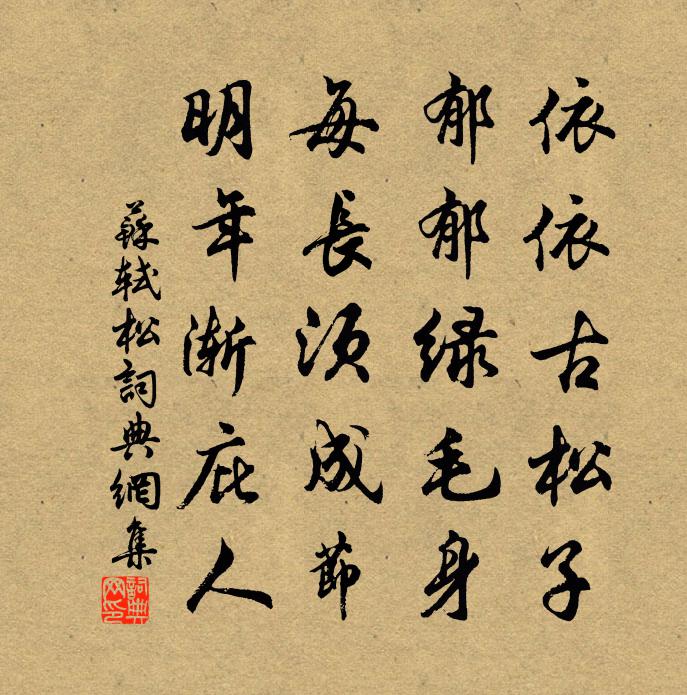 依依古松子
郁郁綠毛身
每長須成節
明年漸庇人
蘇軾松詞典網集
詞典网印